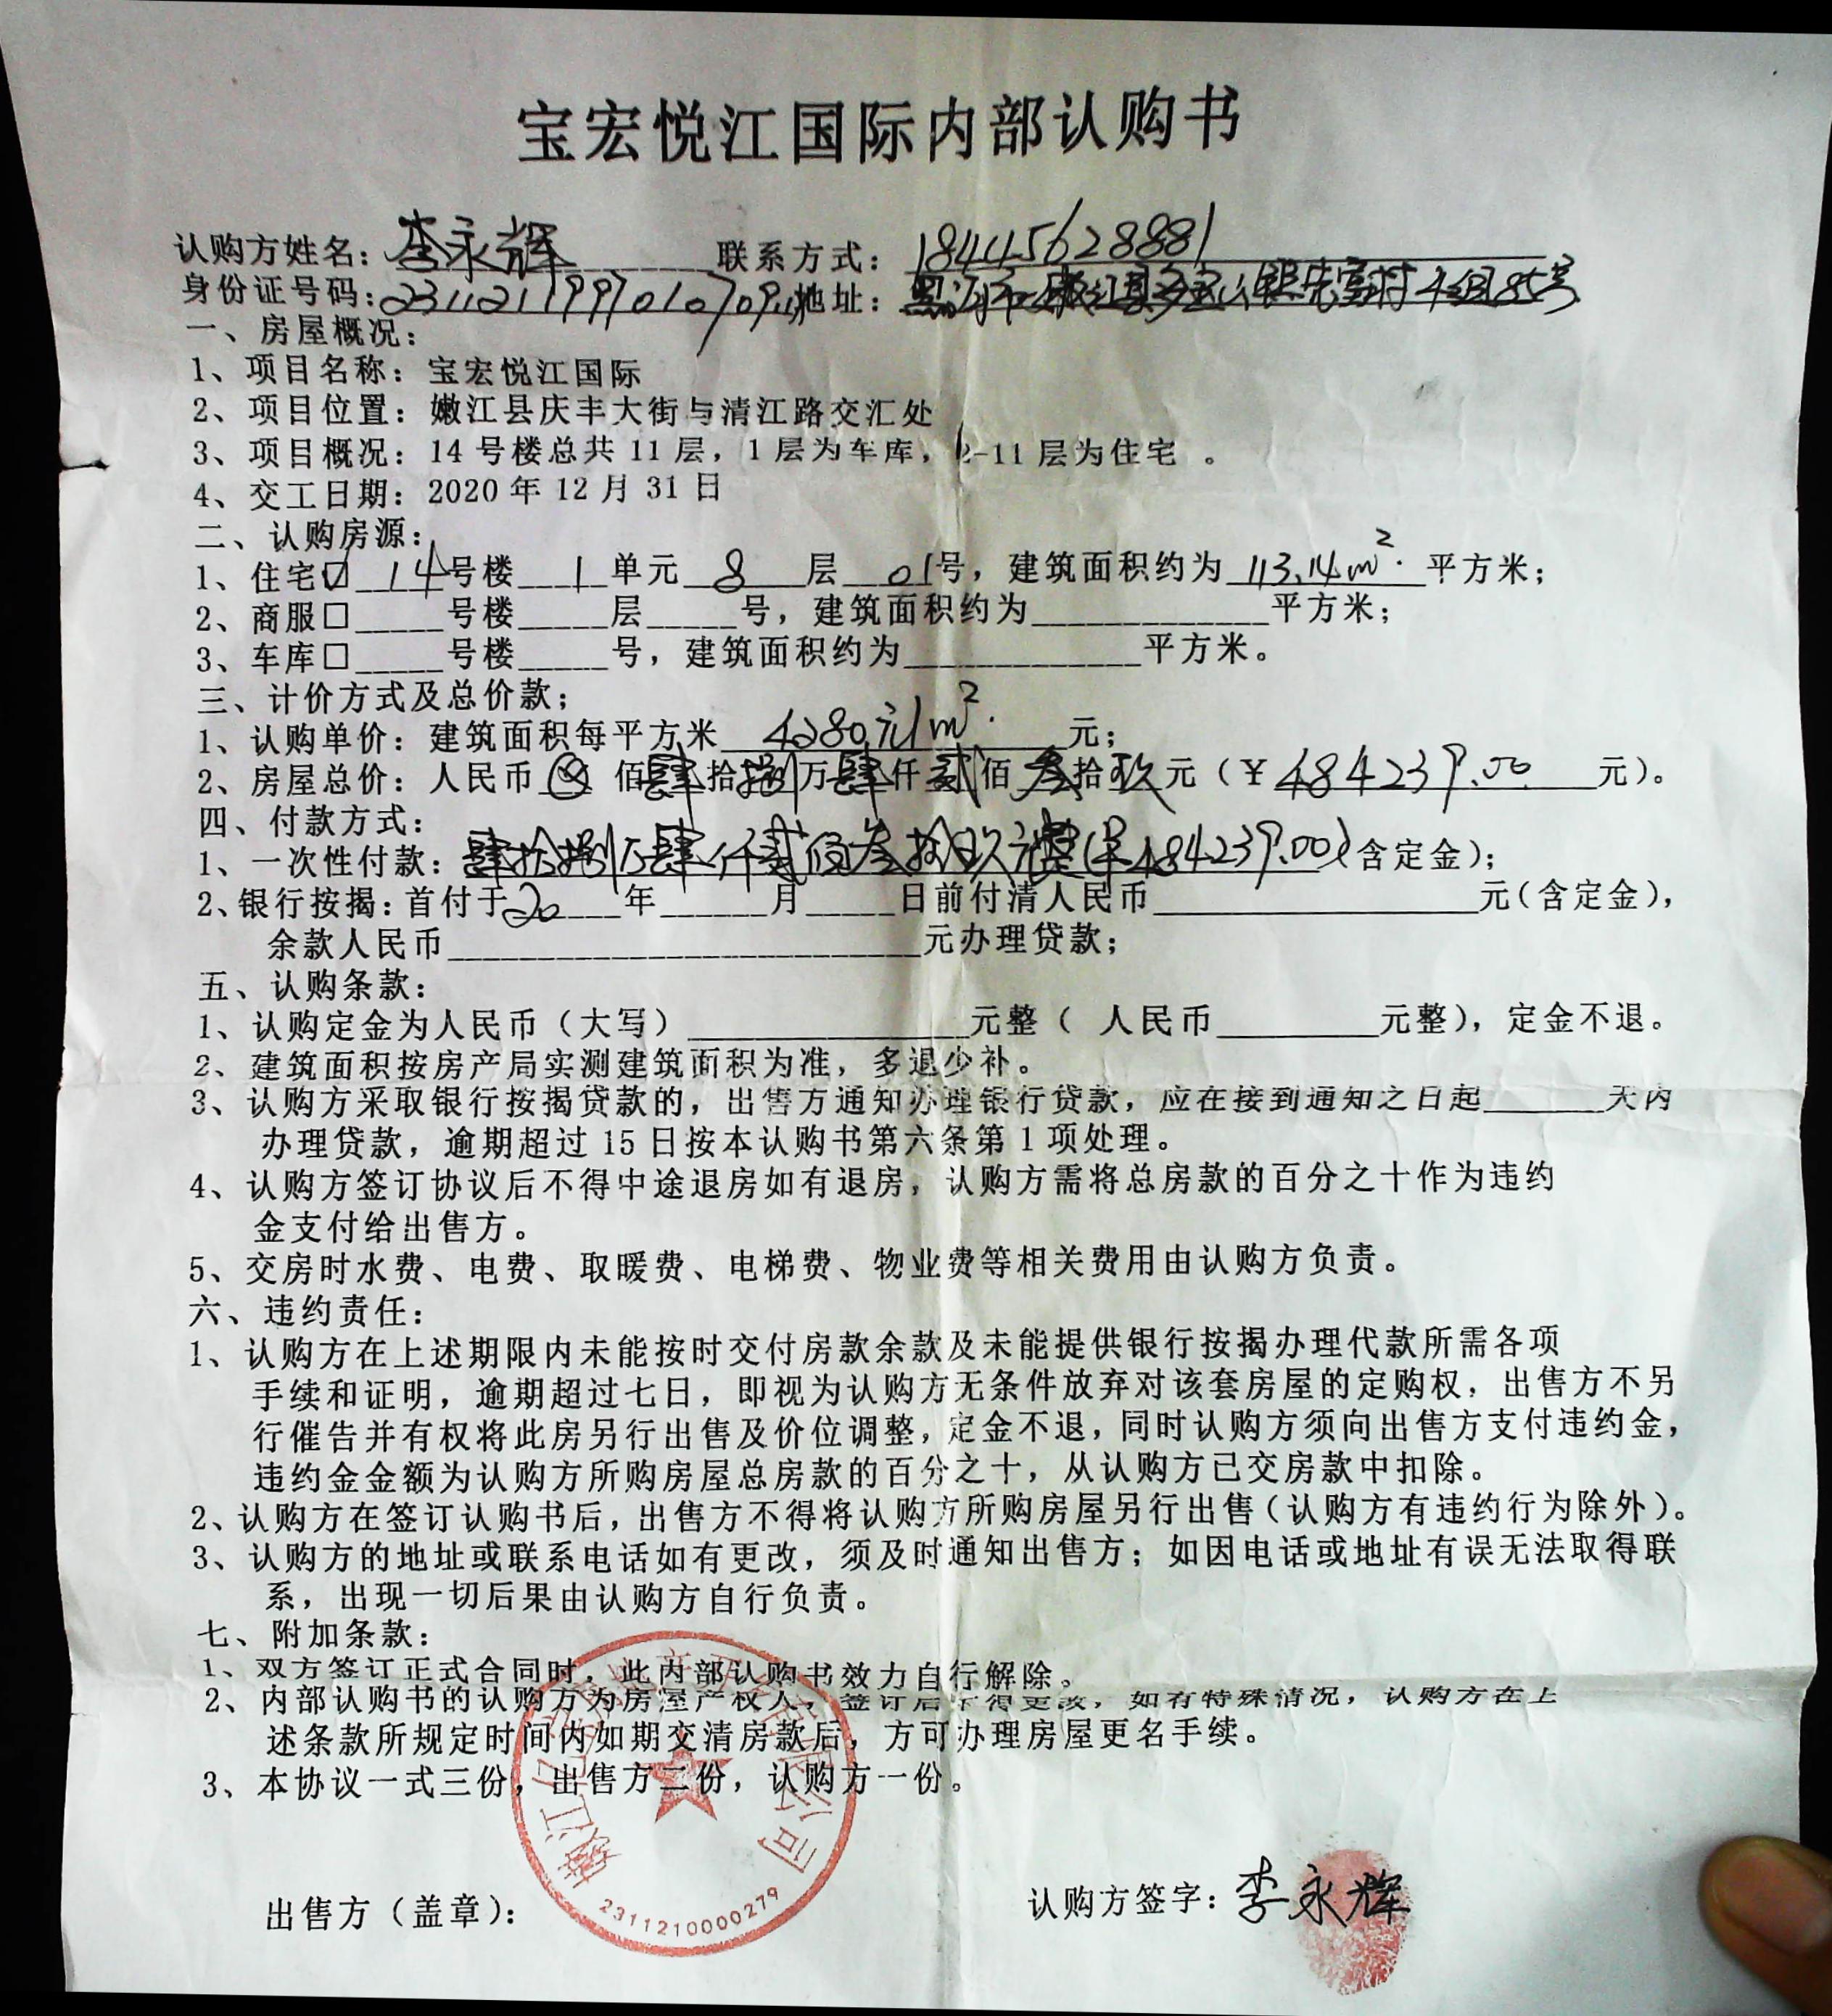 宝宏悦江国际内部认购书
认购方姓名：李永辉 联系方式：18445628881
身份证号码：地址：黑河市嫩江县多宝山镇先富村4组85号
一、房屋概况：
1、项目名称：宝宏悦江国际
2、项目位置：嫩江县庆丰大街与清江路交汇处
3、项目概况：14号楼总共11层，1层为车库，2-11层为住宅 。
4、交工日期：2020年12月31日
二、认购房源：
1、住宅☑ 14号楼 1单元 8 层 01号，建筑面积约为 113.14m². 平方米；
2、商服□_____号楼_____层_____号，建筑面积约为_____________平方米；
3、车库□_____号楼_____号，建筑面积约为_____________平方米。
三、计价方式及总价款；
1、认购单价：建筑面积每平方米 4280元/m². 元；
2、房屋总价：人民币 ⊗ 佰肆拾捌万肆仟贰佰叁拾玖元（￥484239.00 元）。
四、付款方式：
1、一次性付款：肆拾捌万肆仟贰佰叁拾玖元整(￥484239.00)（含定金）；
2、银行按揭：首付于20____年______月_____日前付清人民币__________________元（含定金），
余款人民币__________________________元办理贷款；
五、认购条款：
1、认购定金为人民币（大写）_______________元整（ 人民币_________元整），定金不退。
2、建筑面积按房产局实测建筑面积为准，多退少补。
3、认购方采取银行按揭贷款的，出售方通知办理银行贷款，应在接到通知之日起_______天内
办理贷款，逾期超过15日按本认购书第六条第1项处理。
4、认购方签订协议后不得中途退房如有退房，认购方需将总房款的百分之十作为违约
金支付给出售方。
5、交房时水费、电费、取暖费、电梯费、物业费等相关费用由认购方负责。
六、违约责任：
1、认购方在上述期限内未能按时交付房款余款及未能提供银行按揭办理代款所需各项
手续和证明，逾期超过七日，即视为认购方无条件放弃对该套房屋的定购权，出售方不另
行催告并有权将此房另行出售及价位调整，定金不退，同时认购方须向出售方支付违约金，
违约金金额为认购方所购房屋总房款的百分之十，从认购方已交房款中扣除。
2、认购方在签订认购书后，出售方不得将认购方所购房屋另行出售（认购方有违约行为除外）。
3、认购方的地址或联系电话如有更改，须及时通知出售方；如因电话或地址有误无法取得联
系，出现一切后果由认购方自行负责。
七、附加条款：
1、双方签订正式合同时，此内部认购书效力自行解除。
2、内部认购书的认购方为房屋产权人，签订后不得更改，如有特殊情况，认购方在上
述条款所规定时间内如期交清房款后，方可办理房屋更名手续。
3、本协议一式三份，出售方二份，认购方一份。
出售方（盖章）： 认购方签字：李永辉
2311210000279